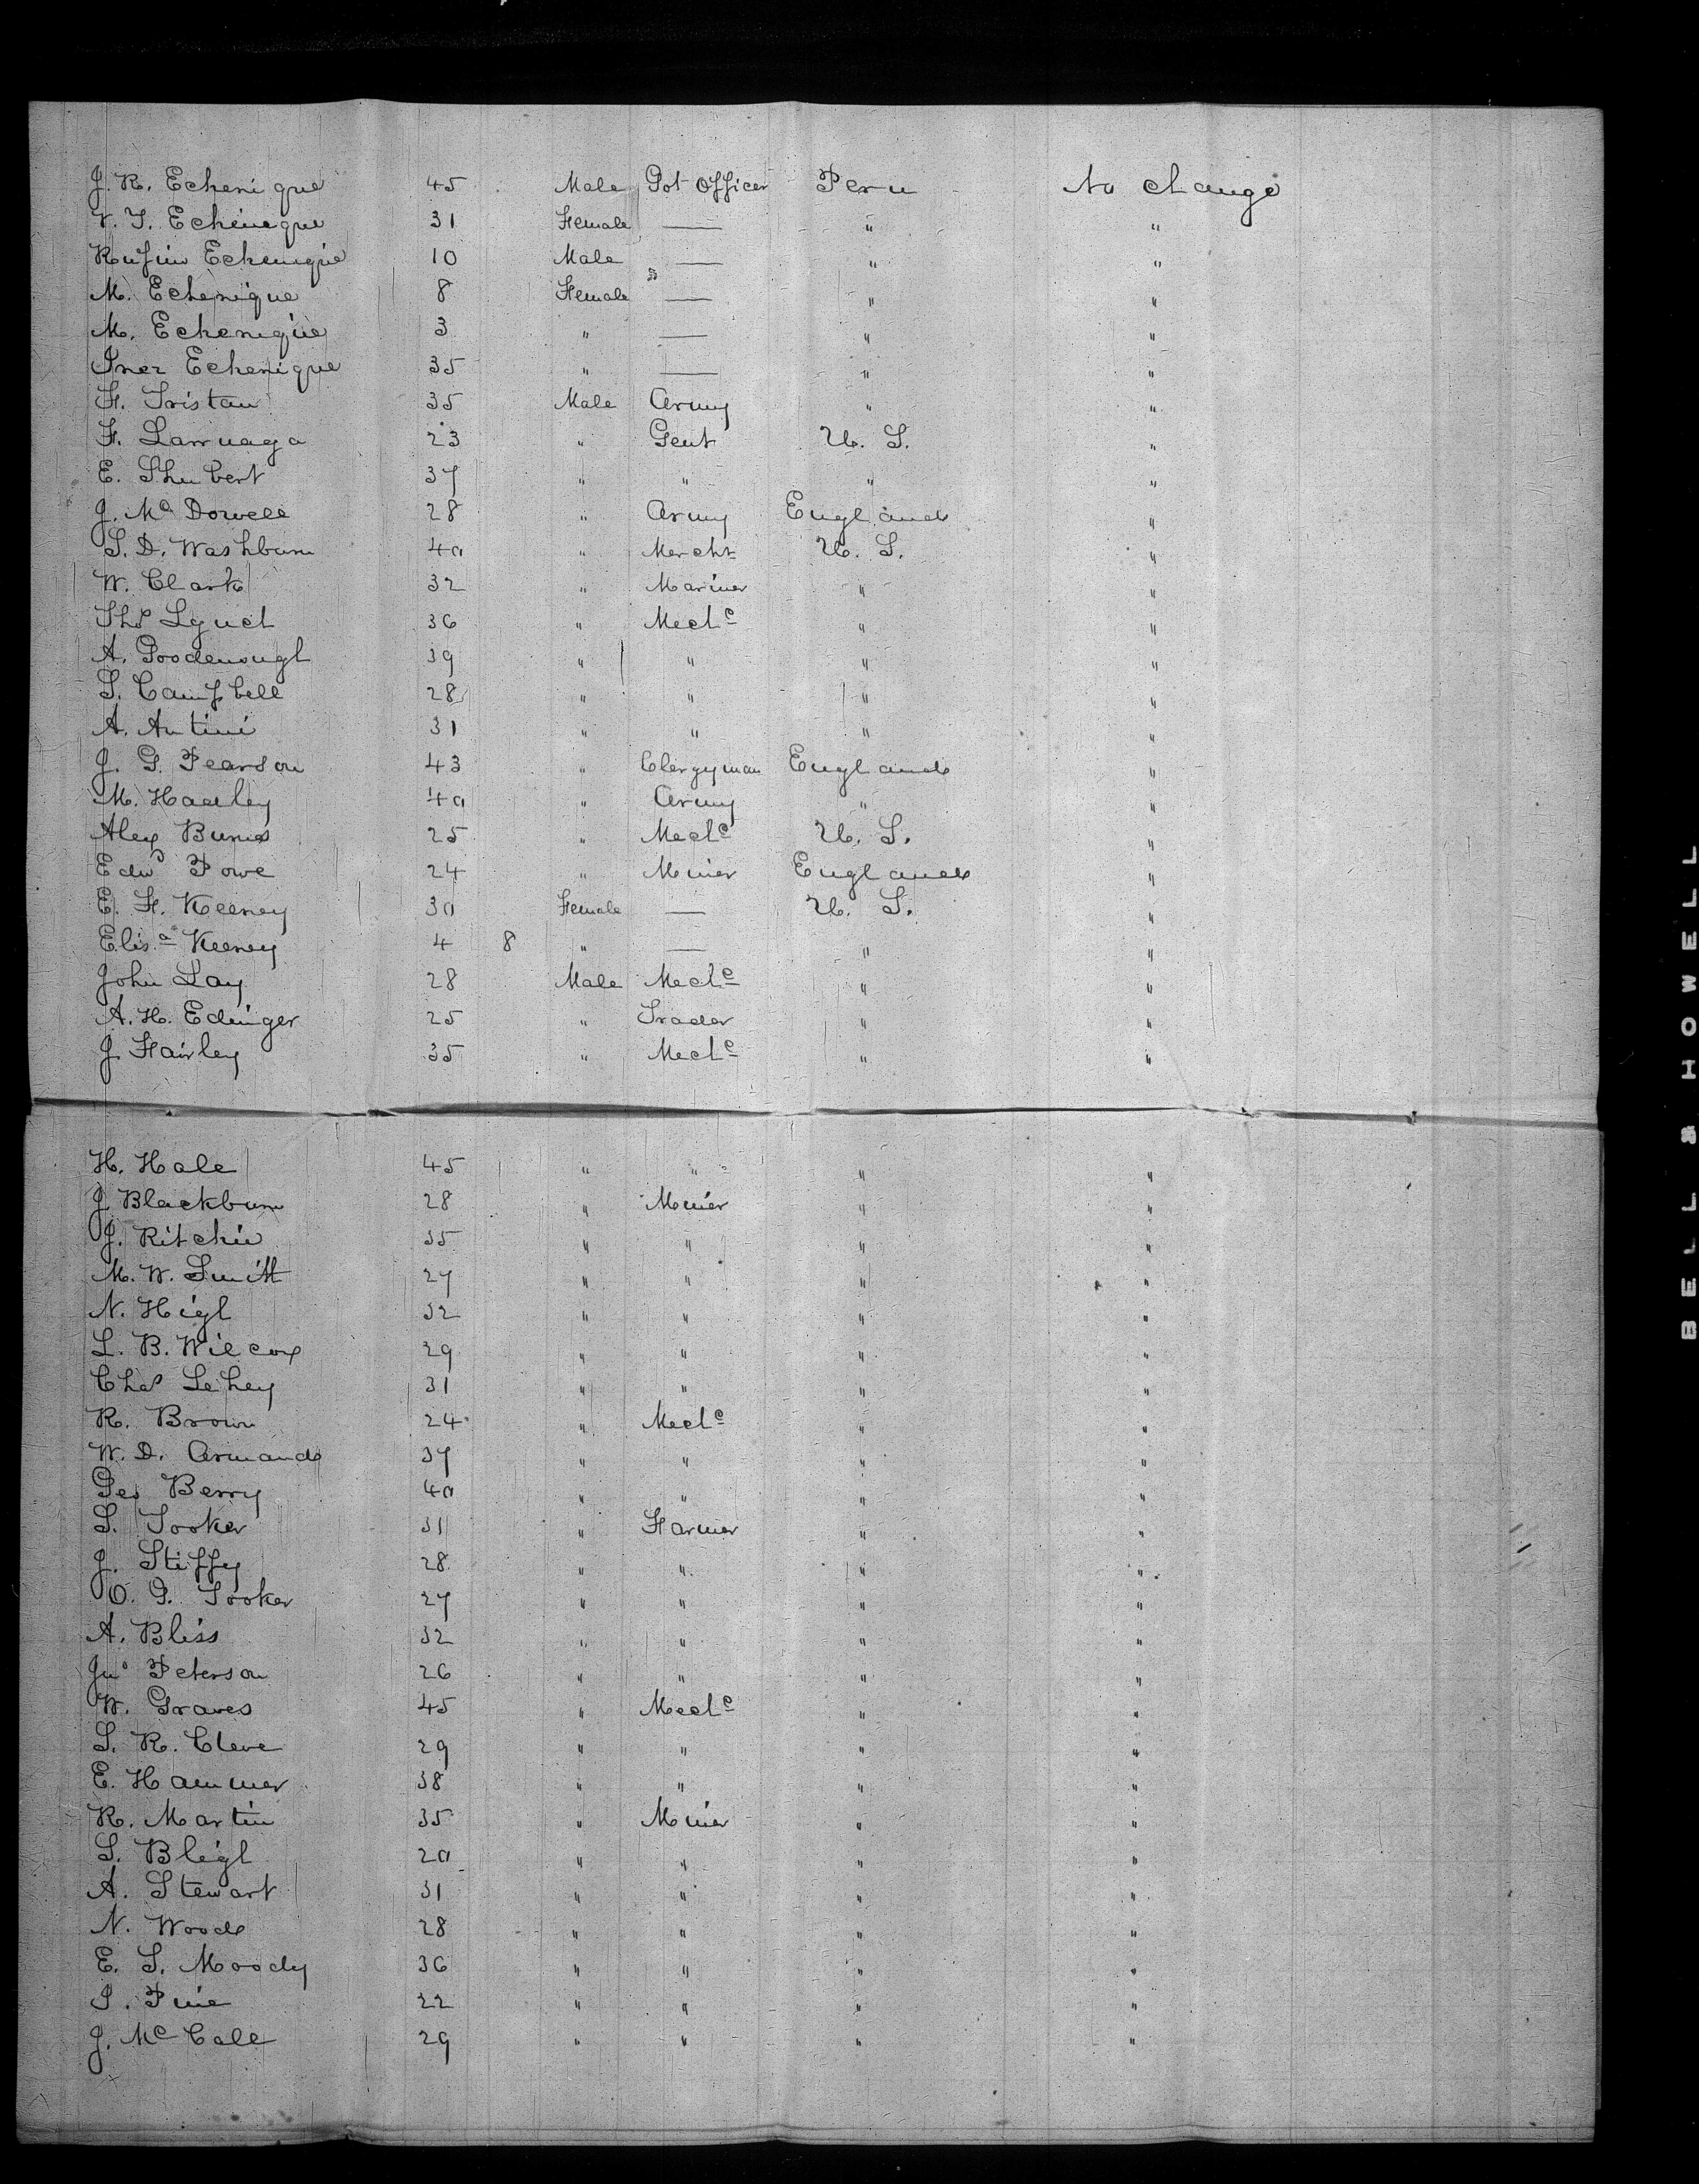 J. R. Echenique 45 Male Got Officer Peru No change
V. T. Echenique 31 Female — " "
Rufino Echenique 10 Male — " "
M. Echenique 8 Female — " "
M. Echenique 3 " — " "
Inez Echenique 35 " — " "
F. Tristan 35 Male Army " "
F. Larruaga 23 " Gent U. S. "
E. Shubert 37 " " " "
J. Mc Dowell 28 " Army England "
S. D. Washburn 40 " Mercht U. S. "
W. Clark 32 " Mariner " "
Thos Lynch 36 " Mechc " "
A. Goodenough 39 " " " "
S. Campbell 28 " " " "
A. Antini 31 " " " "
J. G. Pearson 43 " Clergyman England "
M. Hadley 40 " Army " "
Alex Burns 25 " Mechc U. S. "
Edwd Powe 24 " Miner England "
E. F. Keeney 30 Female — U. S. "
Elisa Keeney 4 8 " — " "
John Lay 28 Male Mechc " "
A. H. Edinger 25 " Trader " "
J. Fairley 35 " Mechc " "
H. Hale 45 " " " "
J Blackburn 28 " Miner " "
J. Ritchie 35 " " " "
M. W. Smith 27 " " " "
N. High 32 " " " "
L. B. Wilcox 29 " " " "
Chas Lehey 31 " " " "
R. Brown 24 " Mechc " "
W. D. Armand 37 " " " "
Geo Berry 40 " " " "
S. Tooker 31 " Farmer " "
J. Stiffy 28 " " " "
O. G. Tooker 27 " " " "
A. Bliss 32 " " " "
Jno Peterson 26 " " " "
W. Graves 45 " Mechc " "
S. R. Cleve 29 " " " "
E. Hammer 38 " " " "
R. Martin 35 " Miner " "
S. Bligh 20 " " " "
A. Stewart 31 " " " "
N. Woods 28 " " " "
E. S. Moody 36 " " " "
Pine 22 " " " "
J. Mc Call 29 " " " "
BELL & HOWELL